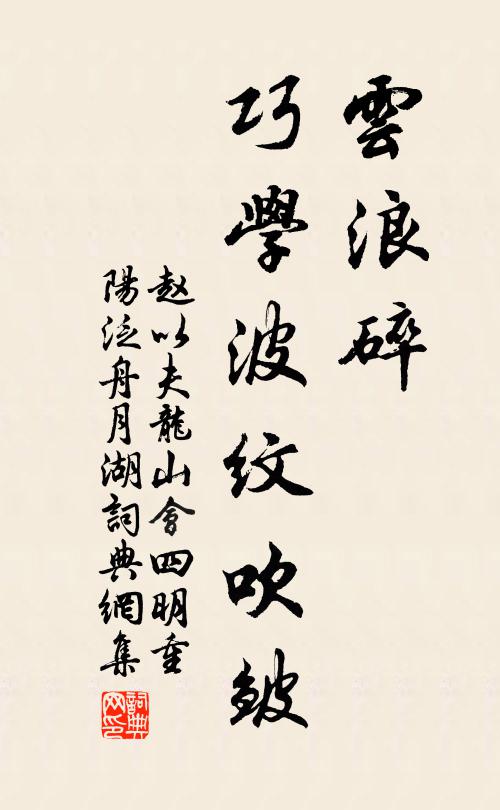 雲浪碎
巧學波紋吹皺
赵以夫龍山會四明重
陽泛舟月湖詞典網集
詞典
网印